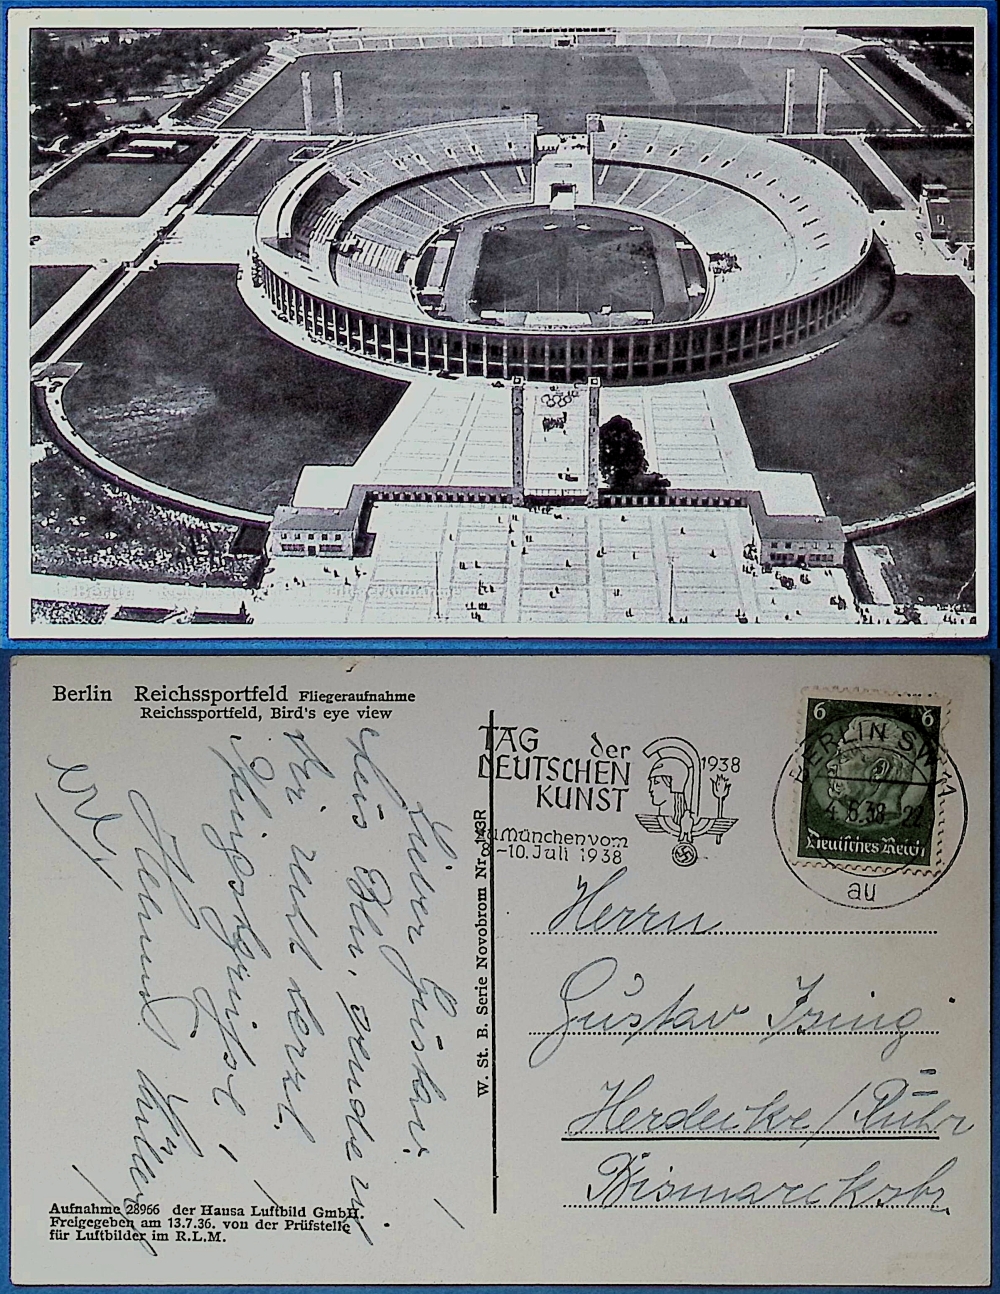 Berlin Reichssportfeld Fliegeraufnahme
Reichssportfeld, Bird's eye view
Lieber Gustav!
Aus Bln. sende ich
Dir recht herzl.
Pfingstgrüße!
Hellmut
TAG der
DEUTSCHEN
KUNST
1938
München vom
-10. Juli 1938
BERLIN SW
4.6.38-22
au
6 6
Deutsches Reich
W. St. B. Serie Novobrom Nr. 143R
Herrn
Gustav Ising
Herdecke/Ruhr
Bismarckstr.
Aufnahme 28966 der Hansa Luftbild GmbH.
Freigegeben am 13.7.36. von der Prüfstelle
für Luftbilder im R.L.M.